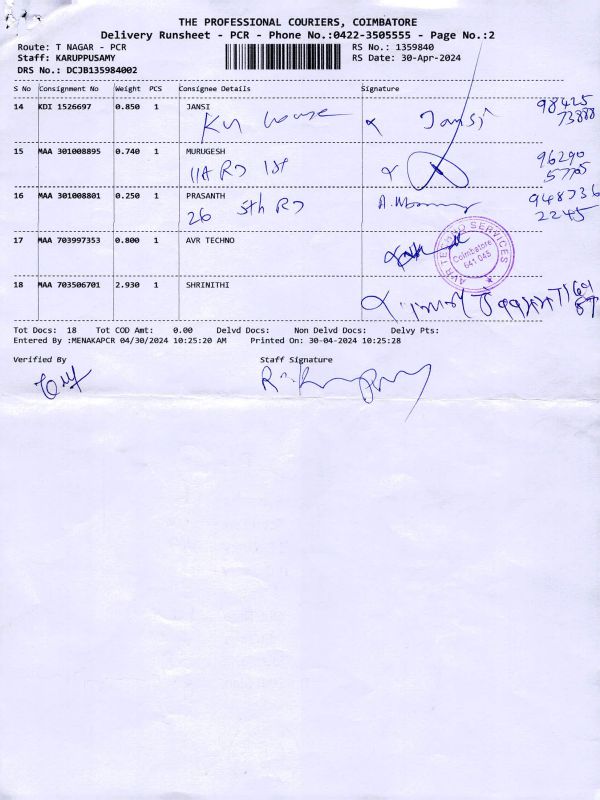 THE PROFESSIONAL COURIERS, COIMBATORE
Delivery Runsheet - PCR - Phone No.:0422-3505555 - Page No.:2
Route: T NAGAR - PCR RS No.: 1359840
Staff: KARUPPUSAMY RS Date: 30-Apr-2024
DRS No.: DCJB135984002
S No Consignment No Weight PCS Consignee Details Signature
14 KDI 1526697 0.850 1 JANSI Jansi 98425
73888
15 MAA 301008895 0.740 1 MURUGESH 96290
11A RD 1st
16 MAA 301008801 0.250 1 PRASANTH 948736
26 5th RD 2245
17 MAA 703997353 0.800 1 AVR TECHNO
AVR TECHNO SERVICES
Coimbatore
641 045
18 MAA 703506701 2.930 1 SHRINITHI
Tot Docs: 18 Tot COD Amt: 0.00 Delvd Docs: Non Delvd Docs: Delvy Pts:
Entered By :MENAKAPCR 04/30/2024 10:25:20 AM Printed On: 30-04-2024 10:25:28
Verified By Staff Signature